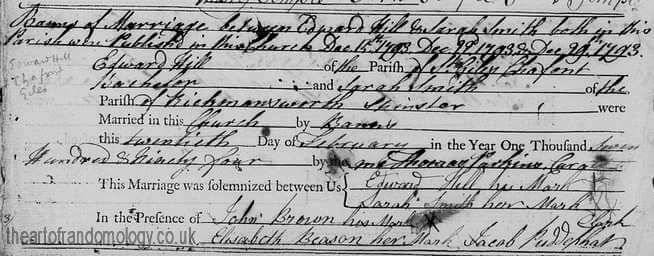 Banns of Marriage between Edward Hill & Sarah Smith both in this
Parish were Published in this Church Dec 15th 1793 Dec 22d 1793 & Dec 29th 1793.
Edward Hill of the Parish of St Giles Chafont
Bachelor and Sarah Smith of the
Parish of Richmansworth Spinster were
Married in this Church by Banns
this twentieth Day of February in the Year One Thousand Seven
Hundred & Ninety four by me Thomas
This Marriage was solemnized between Us Edward Hill his Mark
Sarah Smith her Mark
In the Presence of John Brown his Mark X Clark
Elisabeth Beason her Mark Jacob Puddephat
Edward Hill
Chafont
Giles
3
theartofrandomology.co.uk